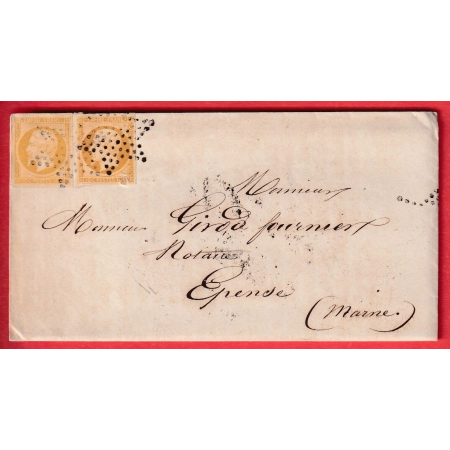 Monsieur
Monsieur Girod fournier
Notaire
Epense
(Marne.)